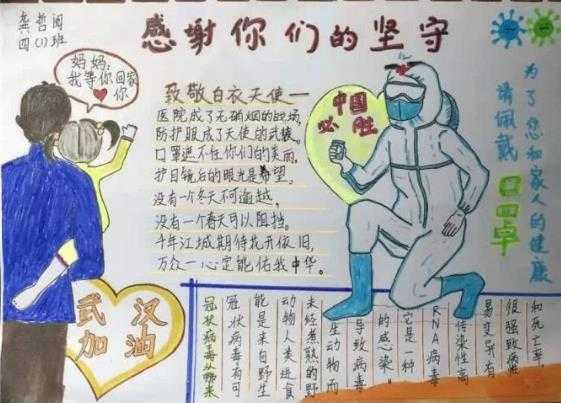 龚哲
四(1)班
感谢你们的坚守
妈妈:
我等你回家
你
致敬白衣天使一
医院成了无硝烟的战场
防护服成了天使的武装。
口罩遮不住你们的美丽。
护目镜后的眼光是希望。
没有一个冬天不可逾越,
没有一个春天可以阻挡。
千年江城期待花开依旧,
万众一心定能佑我中华。
中国
必胜
为了您和家人的健康
请佩戴
口罩
武汉
加油
冠状病毒从哪来
冠状病毒有可
能是来自野生
动物人类进食
未经煮熟的野
生动物而
导致病毒
的感染。
它是一种
RNA病毒
传染性高
易变异有
很强致病
和死亡率